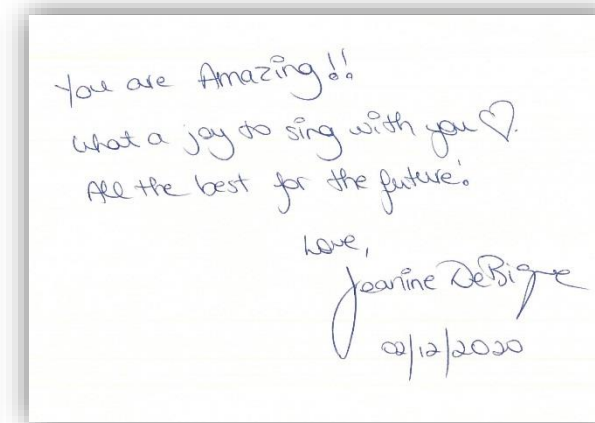 You are Amazing!!
What a joy to sing with you ♡.
All the best for the future!
Love,
Jeanine De Bique
02/12/2020